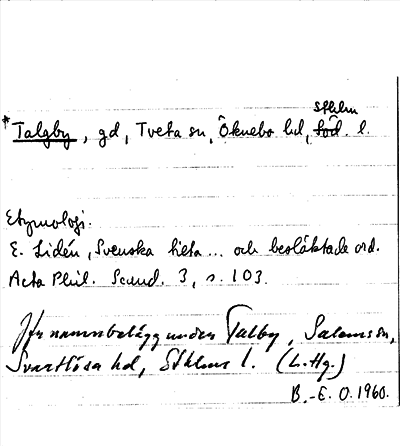 Sthlm
*Talgby, gd, Tveta sn, Öknebo hd, Söd. l.
Etymologi.
E. Lidén, Svenska hets ... och besläktade ord.
Acta Phil. Scand. 3, s. 103.
Jfr namnbelägg under Talby, Salems sn,
Svartlösa hd, Sthlms l. (L. Hg.)
B.-E. O. 1960.